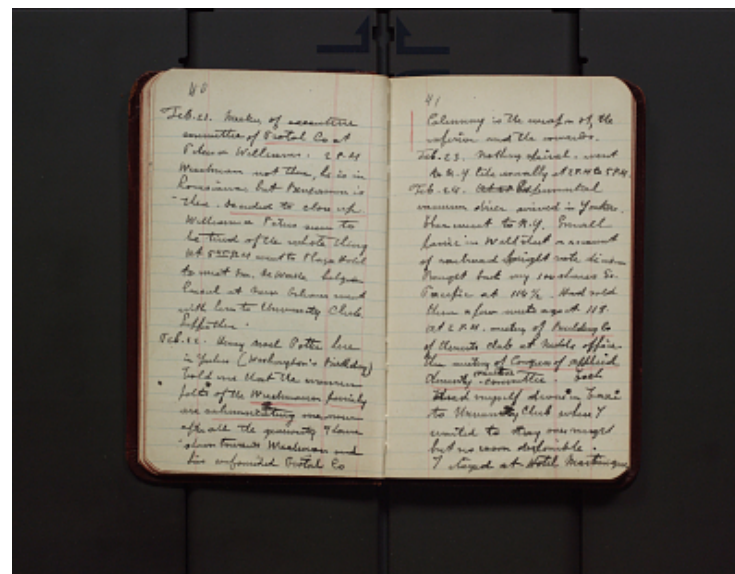 40
Feb. 21. Meeting of executive
committee of Protal Co at
Peters & Williams. 2 P.M
Wiechmann not there, he is in
Louisiana but is
there. Decided to close up.
Williams & Peters seem to
be tired of the whole thing
At 5 P.M went to Plaza Hotel
to meet Mr. Belgian
Consul at New Orleans went
with him to University Club
together.
Feb. 22. Henry Noel Potter here
in Yonkers (Washington's Birthday)
told me that the women
folks of the Wiechmann family
are me
after all the generosity I have
shown towards Wiechmann and
his unfounded Protal Co
41
Calumny is the weapon of the
inferior and the cowards.
Feb. 23. Nothing special. went
to N.Y like usually at 2 P.M to 5 P.M.
Feb. 24. Experimental
vacuum drier arrived in Yonkers.
Then went to N.Y. Small
panic in Wall street on account
of railroad freight rate
Bought back my 100 shares So.
Pacific at 114 1/2. Had sold
them a few weeks ago at 119.
At 2 P.M. meeting of Building Co
of Chemists club at Nichols office.
then meeting of Congress of applied
Chemistry committee.
myself in Taxi
to University Club where I
wanted to stay over night
but no room disponible.
I stayed at Hotel Martinique